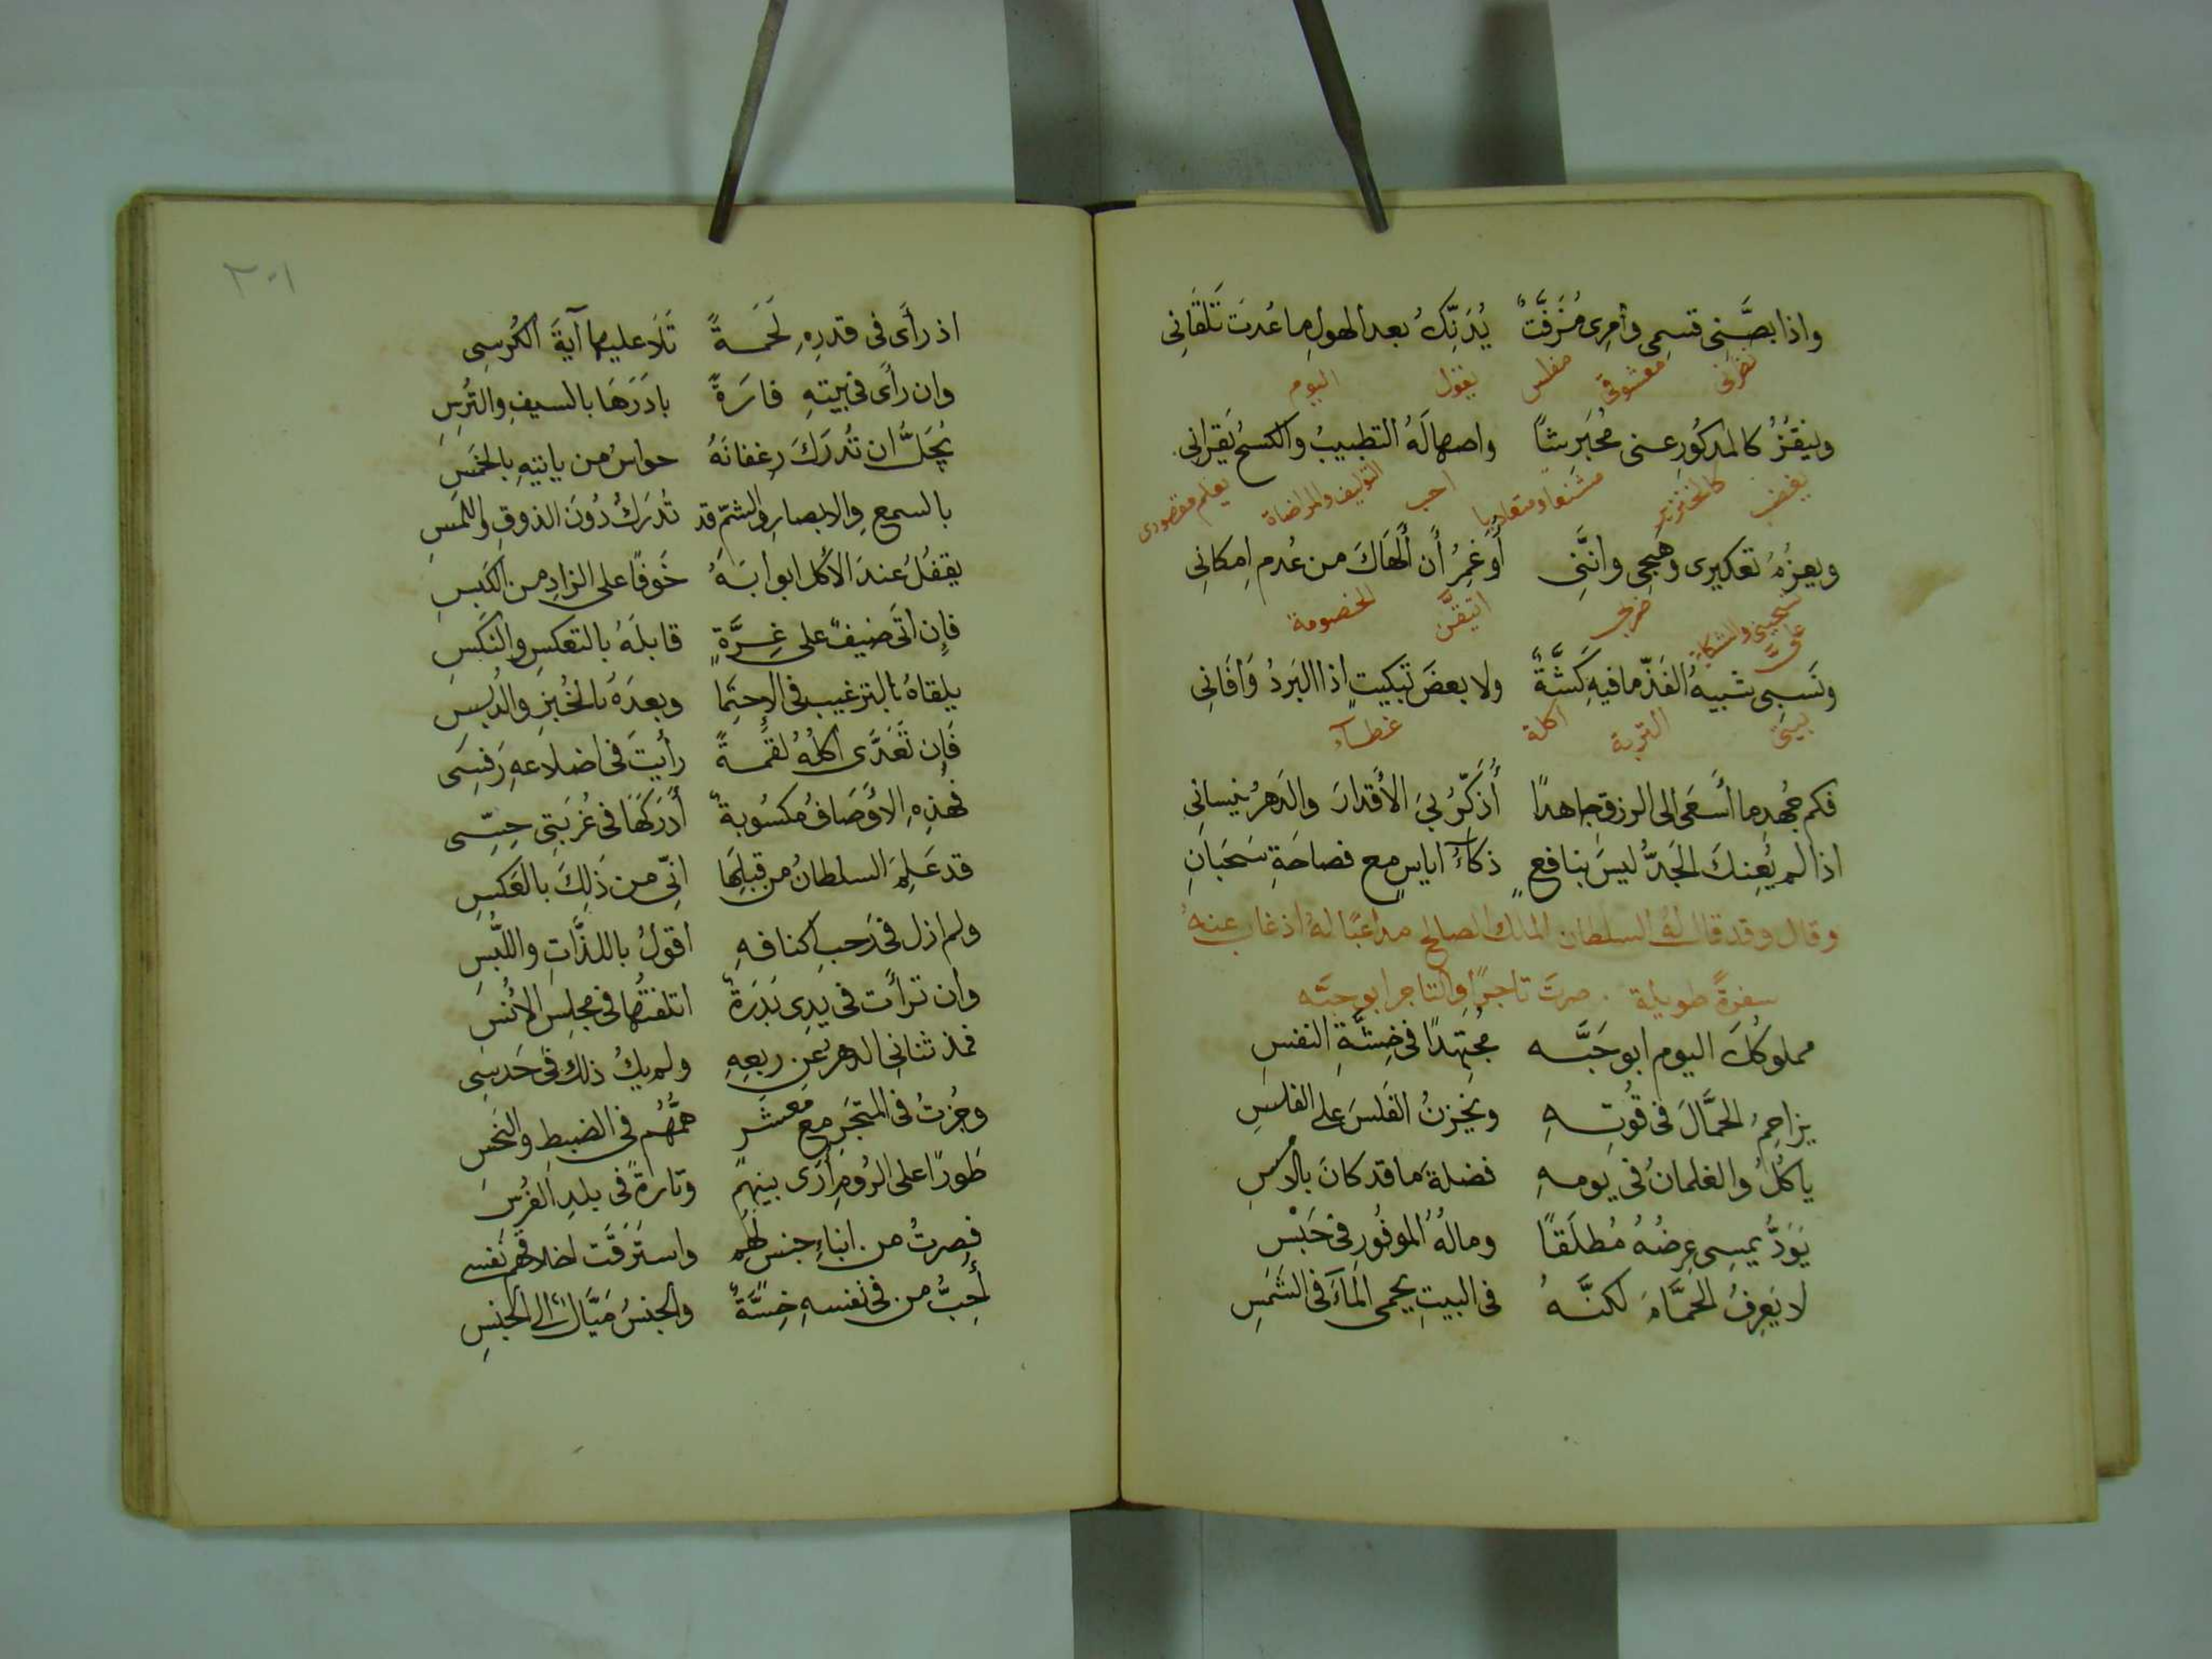 واذا بصَّنى قسمى وأمرى مُزَفَّتٌ يُدَنِّكُ بعد الهولِ ما عُدتَ تَلقَانى
نظرنى معشوقى مفلس يقول اليوم
وينقزُ كالمدكورِ عنى مُجَبَرِشاً واصهالَهُ التطبيبُ والكسحُ يَقرانى
يغضب كالخنزير مشنعا ومتعاديا احب التوليف والمراضاة يعلم مقصودى
ويعزُمُ تعكيرى وهَجِى وانَّنى أُوَغمِرُ أَن أَلهَاكَ من عُدم اِمكانِى
ضربى اتيقّن الخصومة
ونَسبِى شبيهُ الفَذّ ما فيهِ كَشَّةٌ ولا بعضَ تَبكيتٍ اذا البَردُ وَافَانِى
بيتى التربة اكلة غطآء
فكم جُهدِ ما أَسعَى الى الرزقِ جاهدًا أُذَكِّرُ بىَ الأقدارَ والدَهرُ ينسانىِ
اذا لم يُعِنكَ الجَدُّ ليسَ بنافعٍ ذكآءُ اياسٍ مع فصاحَةِ سَحبَانِ
وقال وقد قال لهُ السلطان الملك الصالح مداعبًا لهُ اذ غاب عنهُ
سفرةً طويلة . صرتَ تاجرًا والتاجر ابو حبَّه
مملوكُكَ اليوم ابو حَبَّه مجُتهِدًا فى خِسَّةِ النفسِ
يزاحمُ الحمَّالَ فى قُوتِهِ ويَخزنُ الفَلسَ على الفلسِ
ياكلُ والغلمانُ فى يومهِ فضلةَ ما قد كانَ بالامسِ
يَوَدُّ يمسِى عِرضُهُ مُطلَقًا ومالُهُ الموفُورِ فى حَبْسِ
لا يَعرِفُ الحمَّامَ لكنَّهُ فى البيتِ يحمى المآءَ فى الشَمسِ
٢٠١
اذ رأى فى قدرِهِ لَحَمةً تَلَا عليها آيةَ الكُرسِى
وان رأى فى بيتهِ فارَةً بادَرَهَا بالسيفِ والتُرسِ
يُجَلُّ ان تُدرَكَ رغفانَهُ حواسُ من ياتيهِ بالخَمسِ
بالسمعِ والابصارِ والشمّ قد تُدرَكُ دُونَ الذوقِ واللمسِ
يقفلُ عندَ الأكل ابوابَهُ خَوفًا على الزادِ من الكَبسِ
فإن اتَى ضيفٌ على غِرَّةٍ قابلَهُ بالتعكسِ والنَكسِ
يلقاهُ بالترغيبِ فى الاحِتِمَا وبعدَهُ بالخُبزِ والدُبسِ
فَإن تَغَدَّى اكلُهُ لُقمةً رأيتَ فى اضلاعهِ رَفسِى
فهذهِ الأوصَافُ مكسُوبةٌ أدرَكَهَا فى غُربَتى حِسِّى
قد عَلِمَ السلطانُ من قبلِهَا انّى من ذَلِكَ بالعَكسِ
ولم ازل فى رَحبِ اكنافهِ اقولُ باللذَّاتِ واللُّبسِ
وان ترأَت فى يدِى بَدرَةٌ اتلفتُها فى مجلِسِ الأُنسِ
فمذ ثنانى الدهر عَن ربعِهِ ولم يكُ ذلك فى حَدسِى
وجُزتُ فى المتجَرِ مع مَعشَرٍ همُّهُم فى الضبطِ والبَخسِ
طَورًا على الرُومِ أُرَى بينهُم وتارةً فى بلدِ الفرُسِ
فصِرتُ من ابناءِ جنسٍ لهُم واستَرَقَّت اخلاقُهُم نفسى
أُحِبُّ من فى نفسهِ خِسَّةٌ والجنسُ مَيَّالٌ الى الجنسِ